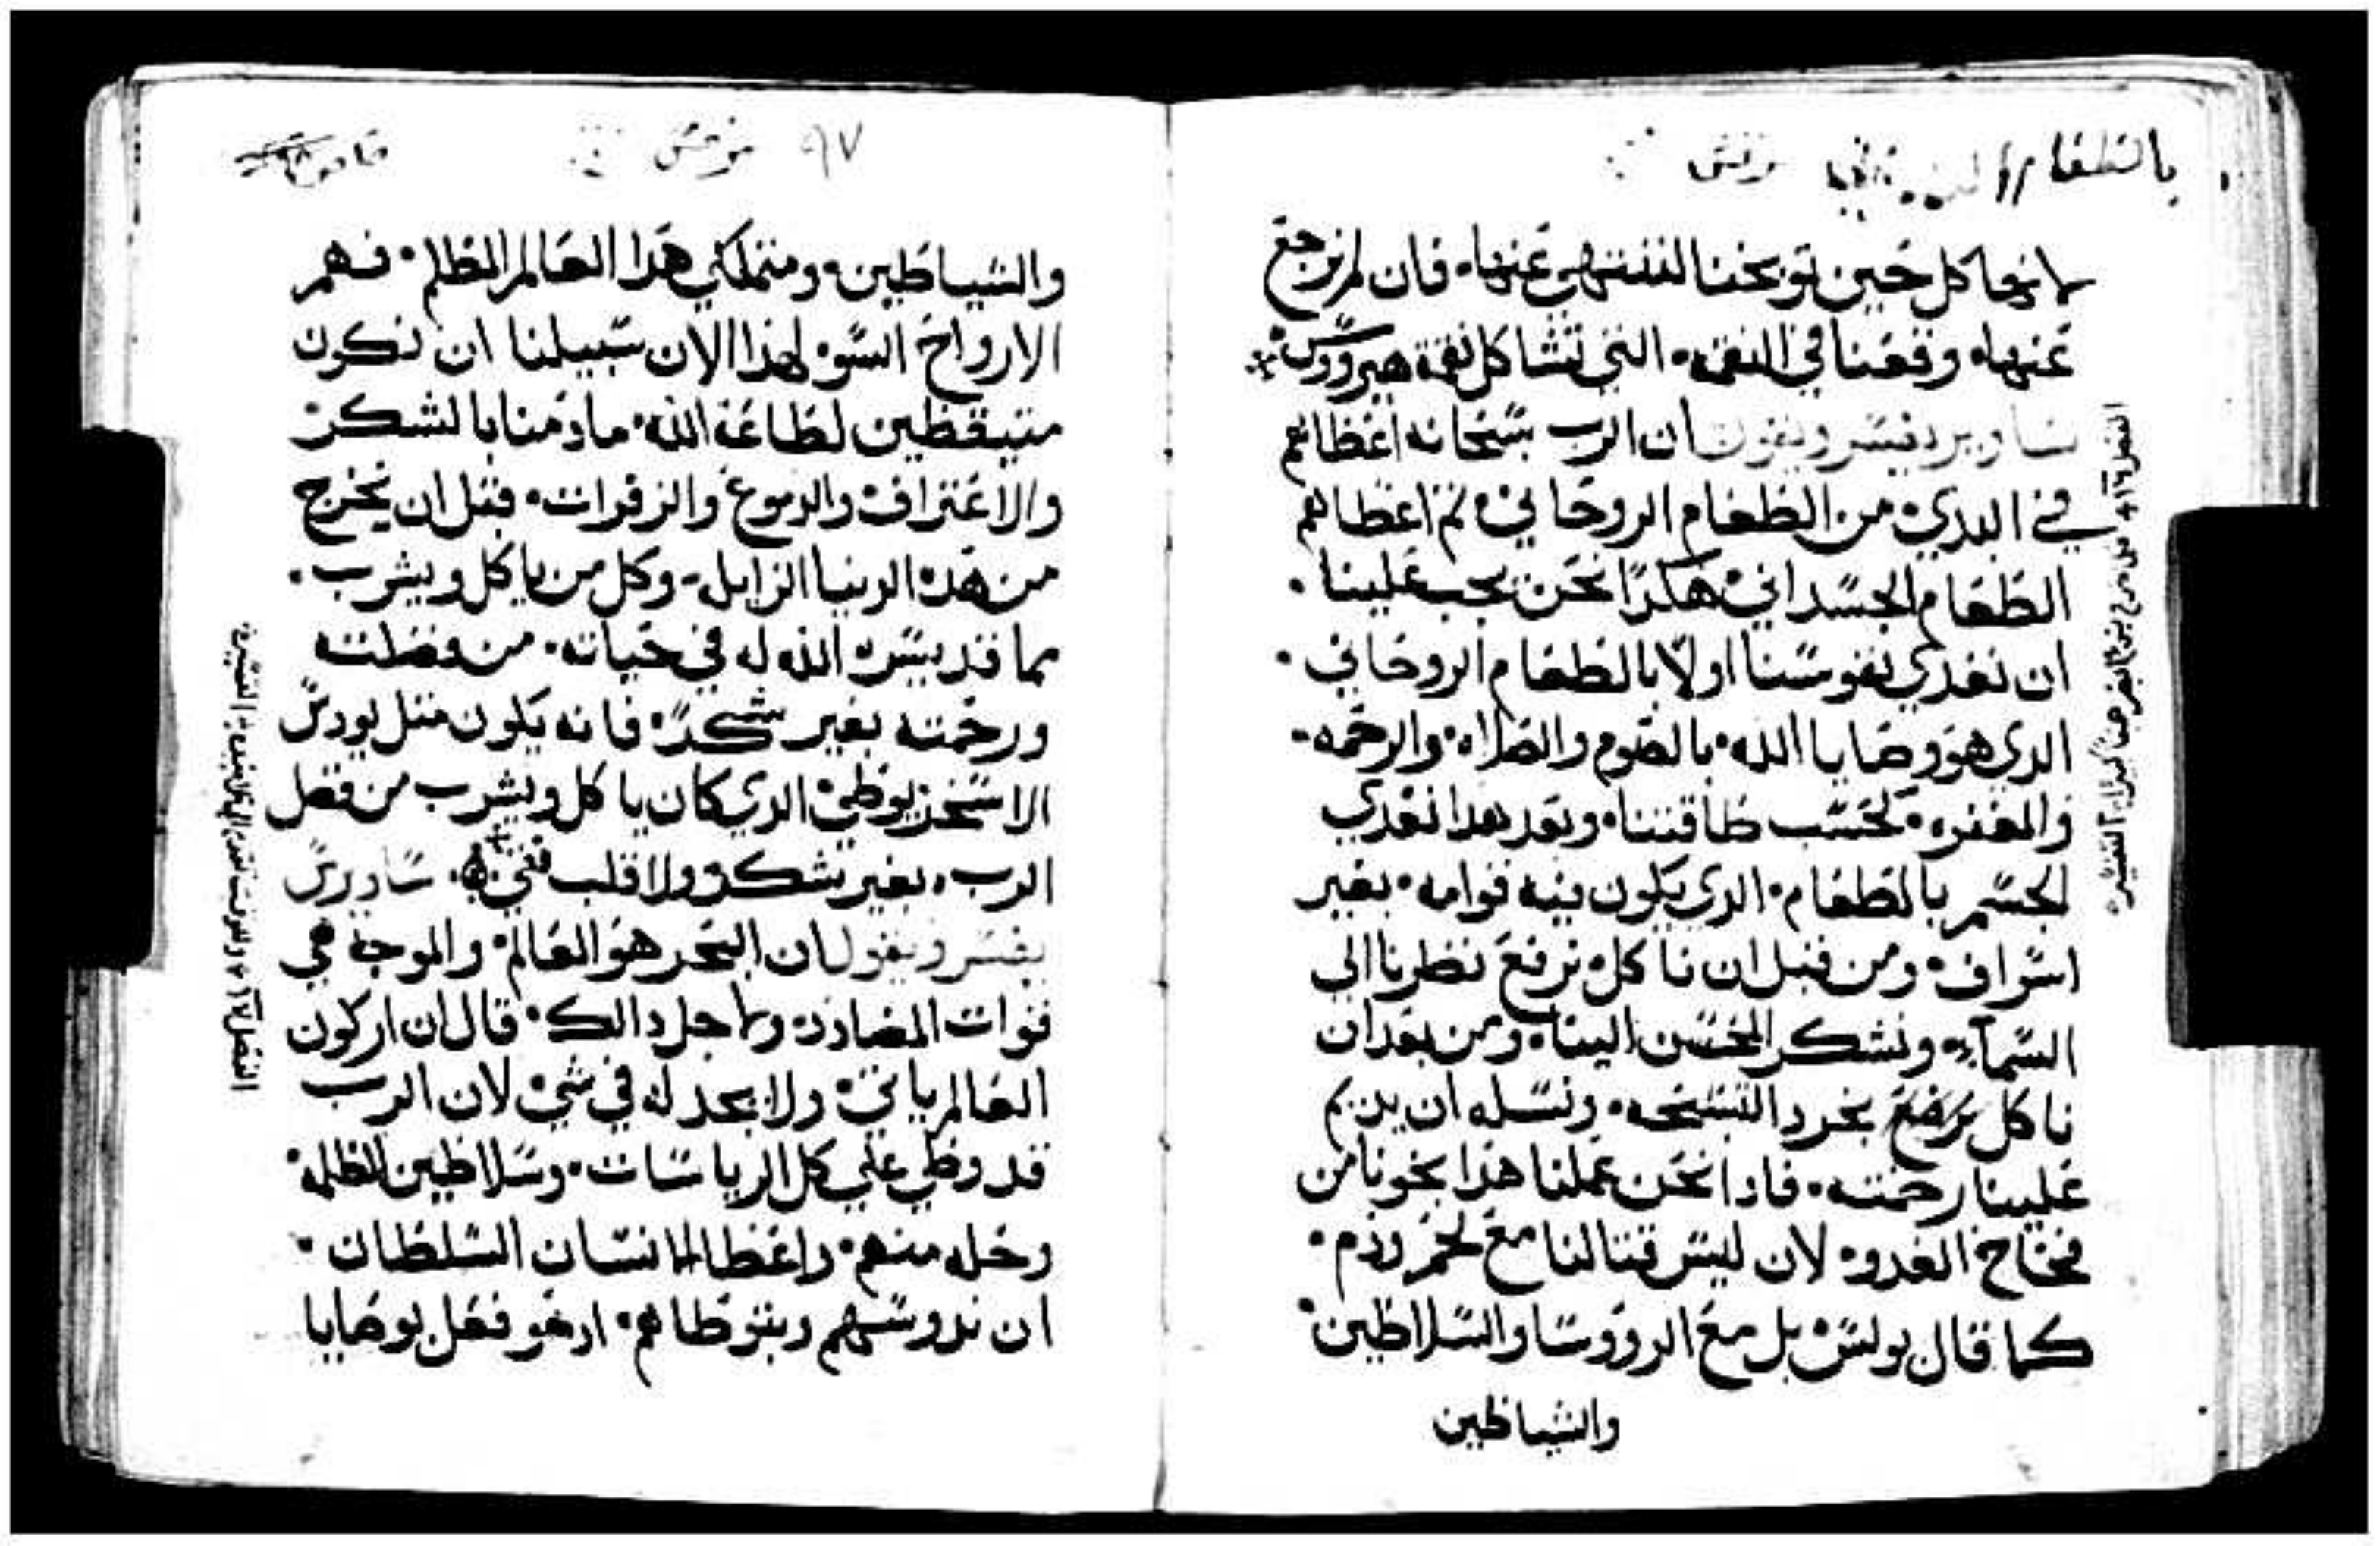 لانها كل حين توبخنا لننتهي عنها. فان لم نرجع
عنها. وقعنا في النقمه. التي تشاكل نقمة هيرودس
ساويرس يفسر ويقول ان الرب سبحانه اعطاهم
في البدي من الطعام الروحاني ثم اعطاهم
الطعام الجسداني هكذا نحن يجب علينا.
ان نغذي نفوسنا اولا بالطعام الروحاني.
الدي هو وصايا الله. بالصوم والصلاه. والرحمه.
والمغفره. كحسب طاقتنا. وبعد هدا نغدي
الجسم بالطعام. الدي يكون فيه قوامه. بغير
اسراف. ومن قبل ان ناكل نرفع نظرنا الي
السماء. ونشكر المحسن الينا. ومن بعد ان
ناكل نرضع بخرد التسبحه. ونسله ان يديم
علينا رحمته. فادا نحن عملنا هدا نجونا من
فخاخ العدو. لان ليس قتالنا مع لحم ودم.
كما قال بولس بل مع الرووسا والسلاطين
والشياطين
٩٧ مرقس
والشياطين. ومتملكي هدا العالم المظلم. فهم
الارواح السو. لهدا الان سبيلنا ان نكون
متيقظين لطاعة الله. ما دمنا بالشكر
والاعتراف والدموع والزفرات. قبل ان نخرج
من هده الدنيا الزايل. وكل من ياكل ويشرب.
مما قد يسره الله له في حياته. من فضلته
ورحمته بغير شكر. فانه يكون متل يودس
الاسخريوطي الدي كان ياكل ويشرب من فضل
الرب. بغير شكر ولا قلب نقي. ساويرس
يفسر ويقول ان البحر هو العالم. والموج هي
قوات المضادد. ولاجل دالك. قال ان اركون
العالم ياتي. ولا يجد له في شي لان الرب
قد وطي علي كل الرياسات. وسلاطين الظلمة
وخله منهم. واعطا الانسان السلطان.
ان ندوسهم وبتوطاهم. ادهو فعل بوصايا